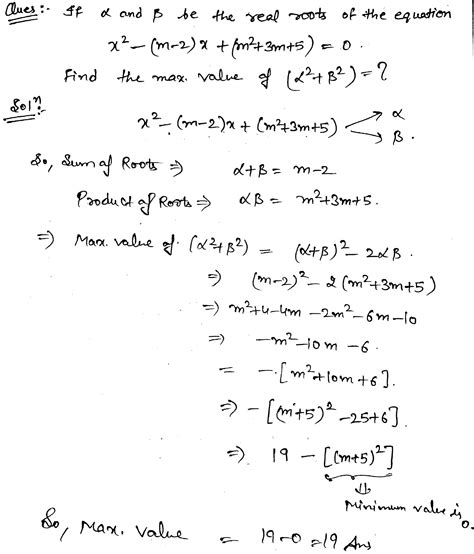 Ques:- If α and β be the real roots of the equation
x² - (m-2)x + (m²+3m+5) = 0.
Find the max. value of (α²+β²) = ?
Solⁿ:-
x² - (m-2)x + (m²+3m+5) → α → β.
So, Sum of Roots ⇒ α+β = m-2
Product of Roots ⇒ αβ = m²+3m+5.
⇒ Max. value of (α²+β²) = (α+β)² - 2αβ.
⇒ (m-2)² - 2(m²+3m+5)
⇒ m²+4-4m - 2m² - 6m - 10
⇒ -m² - 10m - 6.
= -[m²+10m+6].
⇒ -[(m+5)² - 25+6]
⇒ 19 - [(m+5)²]
⇓
Minimum value is 0.
So, Max. Value = 19-0 = 19 Ans